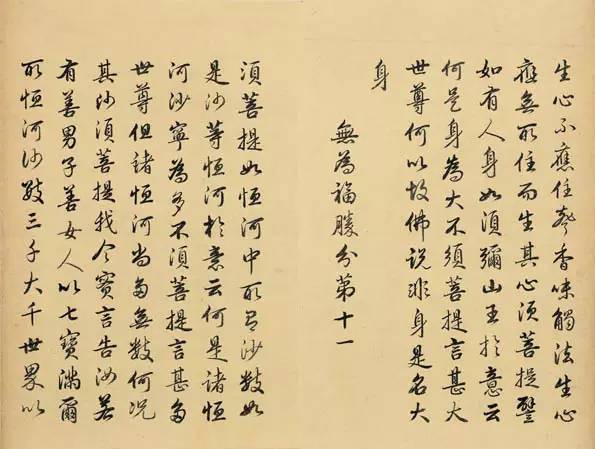 生心不應住聲香味觸法生心
應無所住而生其心須菩提譬
如有人身如須彌山王於意云
何是身為大不須菩提言甚大
世尊何以故佛說非身是名大
身
無為福勝分第十一
須菩提如恒河中所有沙數如
是沙等恒河於意云何是諸恒
河沙寧為多不須菩提言甚多
世尊但諸恒河尚多無數何況
其沙須菩提我今實言告汝若
有善男子善女人以七寶滿爾
所恒河沙數三千大千世界以